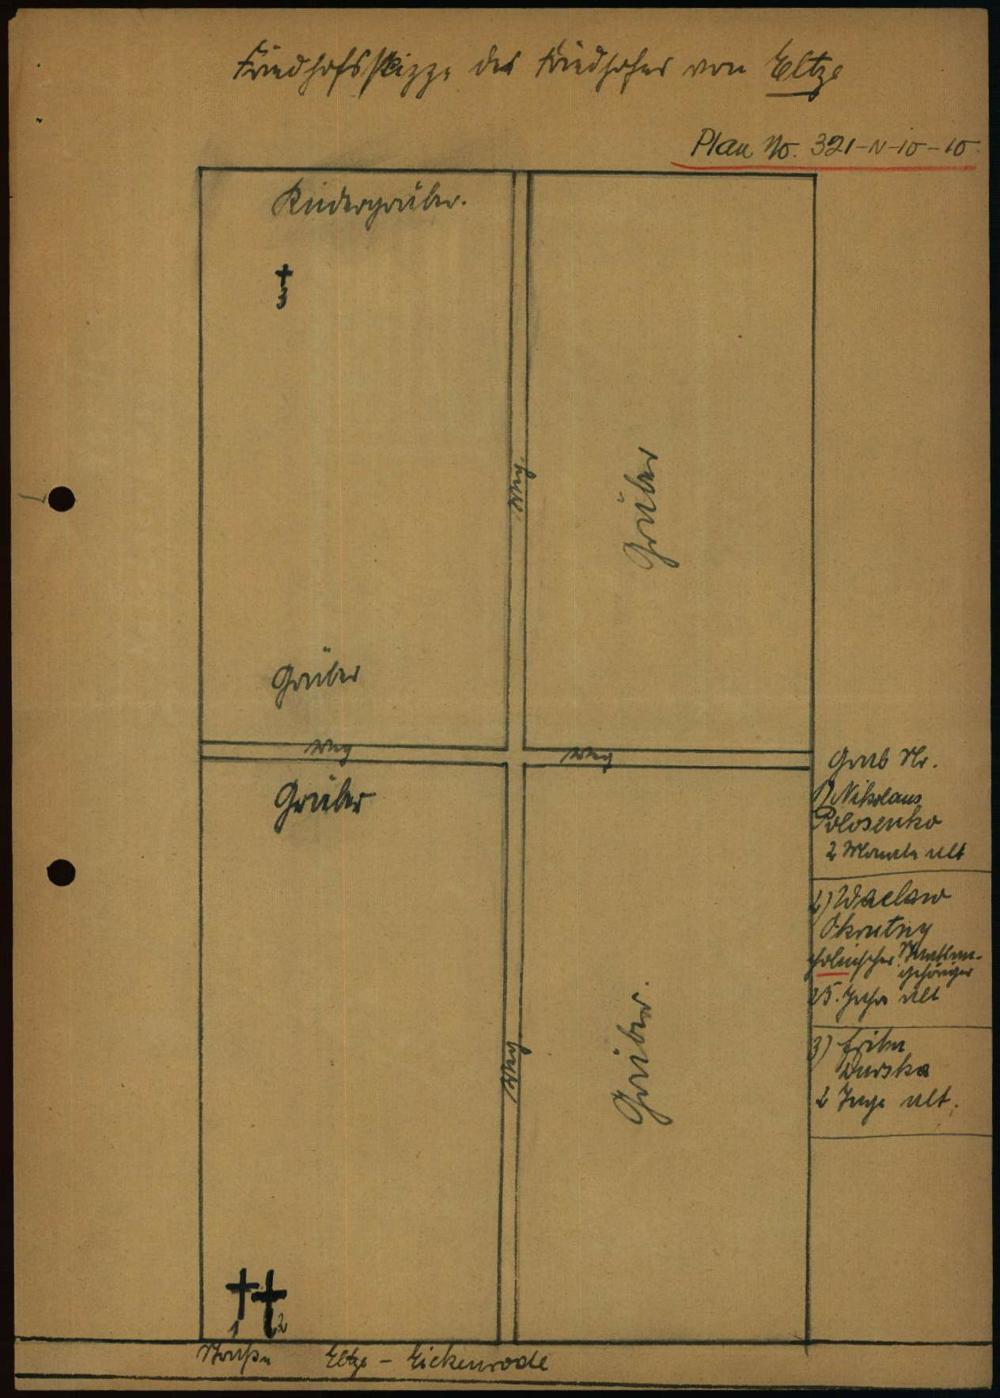 Friedhofsskizze des Friedhofes von Eltze
Plan No. 321-N-10-10
Kindergräber.
3
Weg.
Gräber
Gräber
Weg
Weg
Gräber
Grab Nr.
1) Nikolaus
Polosenko
2 Monate alt
2) Waclaw
Okrutny
polnischer Staatsan-
gehöriger
25. Jahre alt
3)
2 Tage alt.
Weg.
Gräber.
1 2
Straße Eltze - Eickenrode